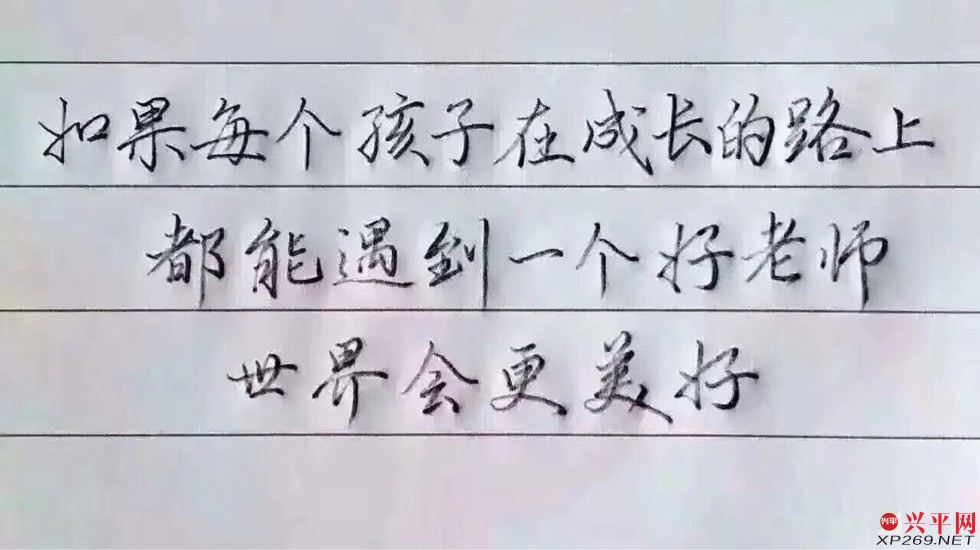 如果每个孩子在成长的路上
都能遇到一个好老师
世界会更美好
兴平 兴平网
XP269.NET